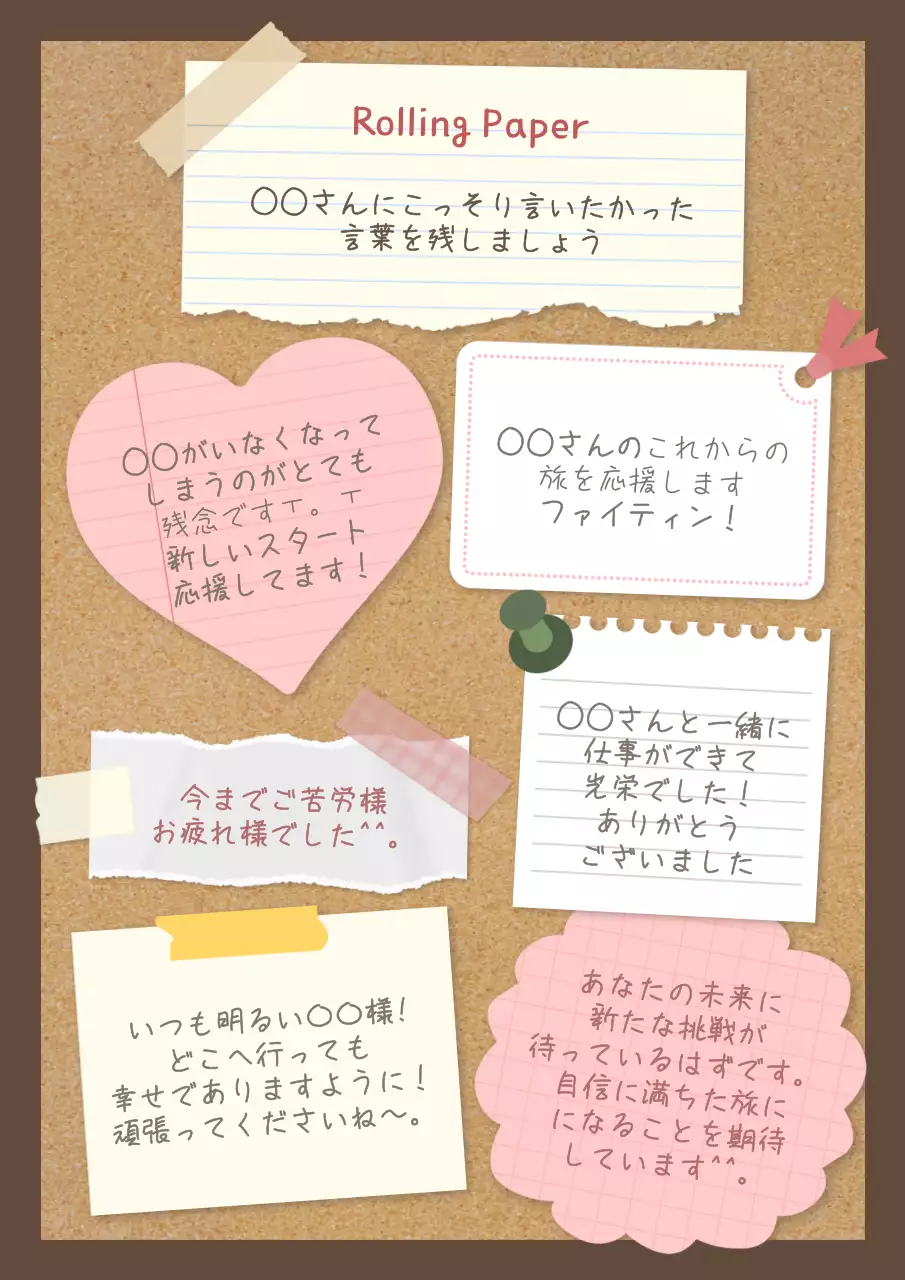 Rolling Paper
〇〇さんにこっそり言いたかった
言葉を残しましょう
〇〇がいなくなって
しまうのがとても
残念ですㅜ。ㅜ
新しいスタート
応援してます！
〇〇さんのこれからの
旅を応援します
ファイティン！
〇〇さんと一緒に
仕事ができて
光栄でした！
ありがとう
ございました
今までご苦労様
お疲れ様でした^^。
いつも明るい〇〇様!
どこへ行っても
幸せでありますように！
頑張ってくださいね〜。
あなたの未来に
新たな挑戦が
待っているはずです。
自信に満ちた旅に
になることを期待
しています^^。